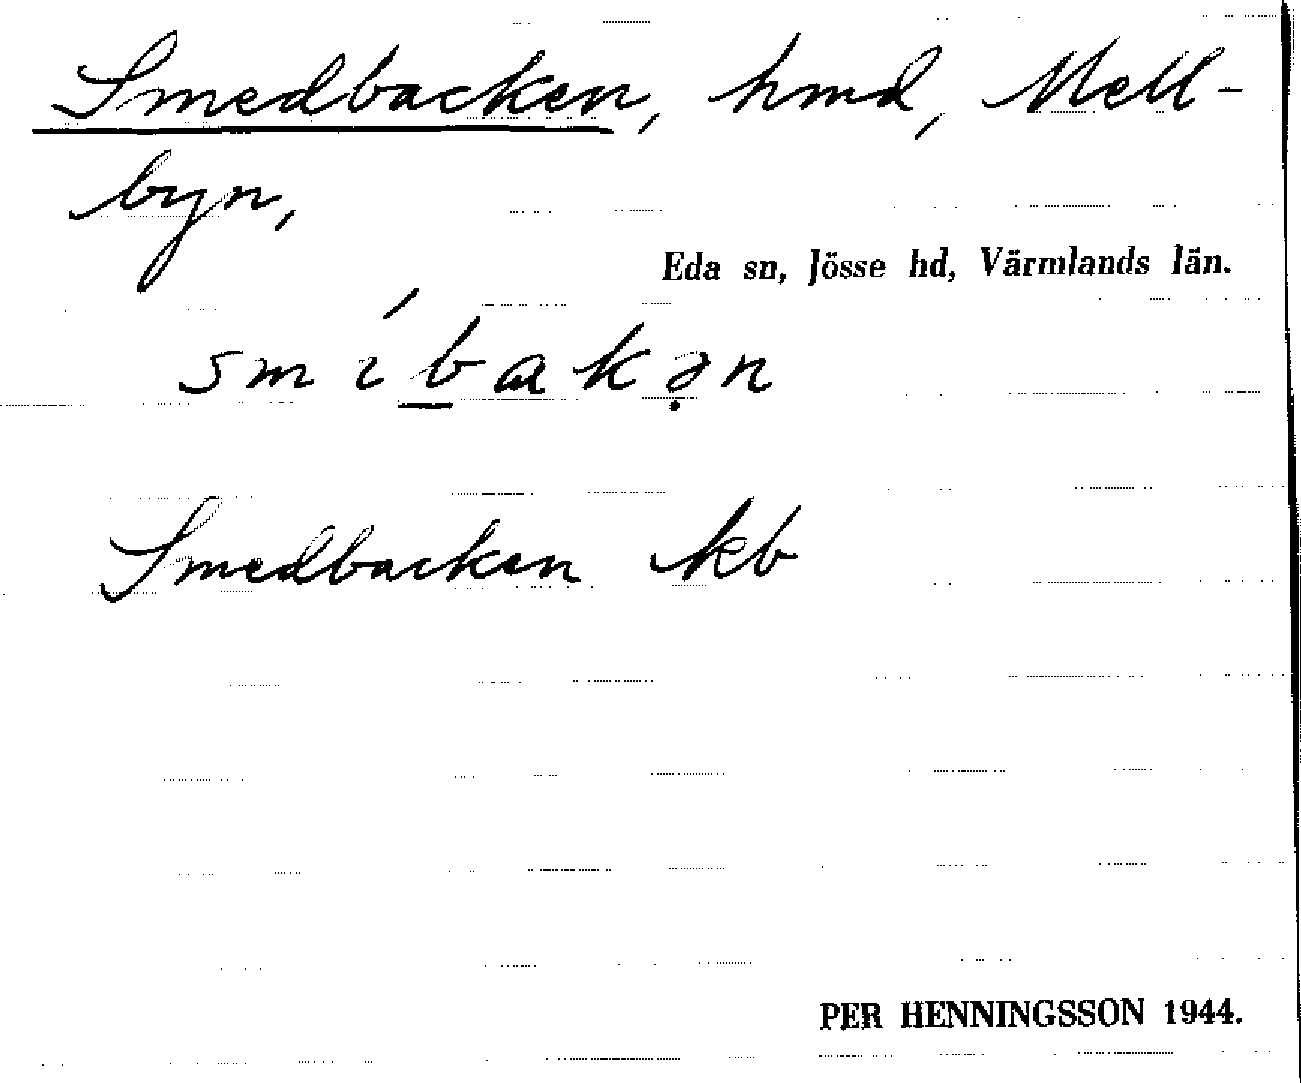 Smedbacken, hmd, Mell-
byn,
Eda sn, Jösse hd, Värmlands län.
smíb̲akə̣n
Smedbacken kb
PER HENNINGSSON 1944.